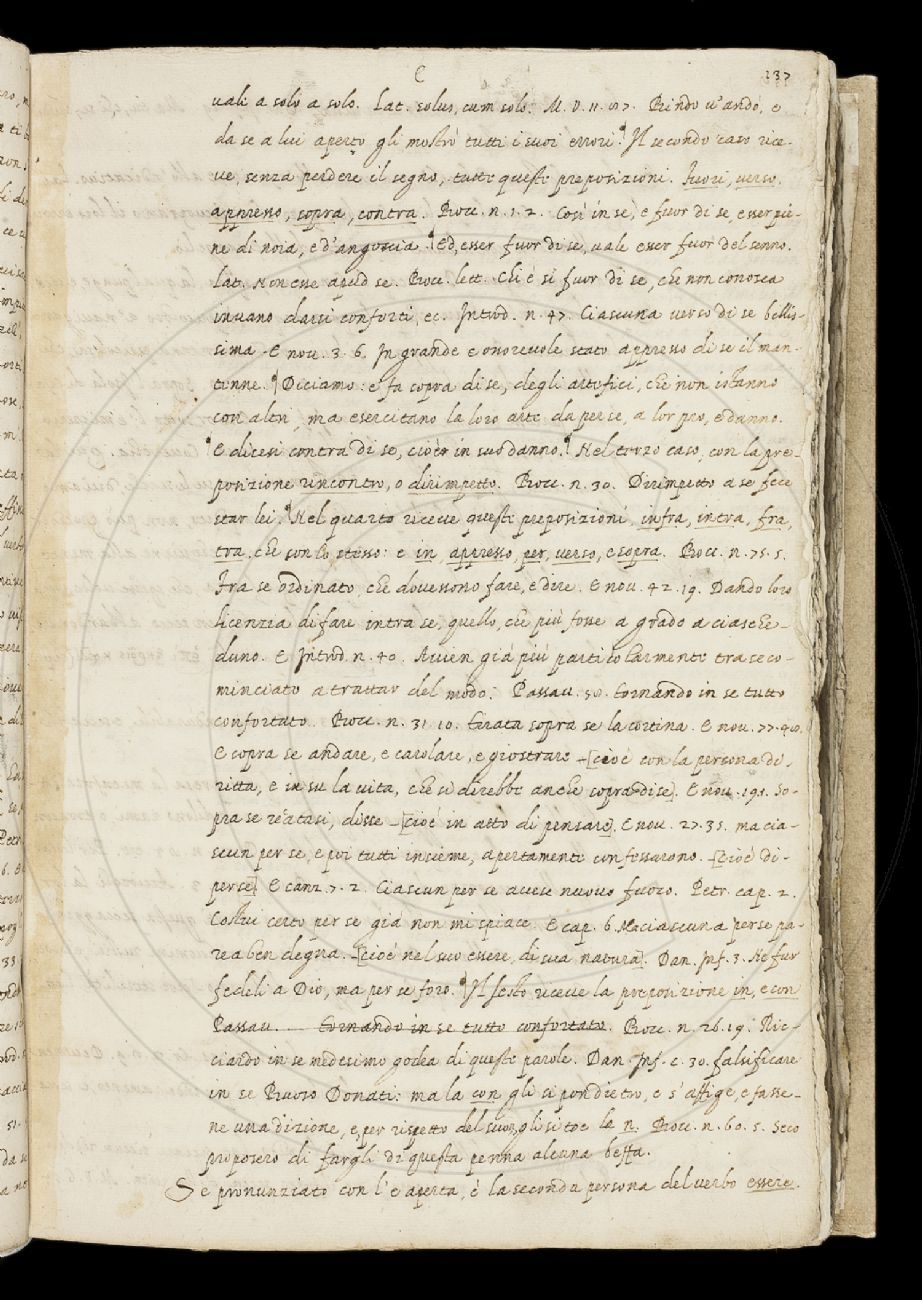 C 237
vali a solo a solo. Lat. solus, cum solo. M. V. 11. 57. Rindo v'andò, e
da se a lui aperto gli mostrò tutti i suoi errori. Il secondo caso rice-
ve, senza perdere il segno, tutte queste preposizioni. fuori, verso,
appresso, sopra, contra. Bocc. n. 1. 2. Così in se, e fuor di se, esser pie-
ne di noia, e d'angoscia. Ed, esser fuor di se, vale esser fuor del senno.
Lat. Non esse apud se. Bocc. lett. Chi è sì fuor di se, che non conosca
invano darsi conforti, ec. Introd. n. 47. Ciascuna verso di se bellis-
sima. E nov. 3. 6. In grande e onorevole stato appresso di se il man-
tenne. Diciamo: e fa sopra di se, degli artefici, che non istanno
con altri, ma esercitano la loro arte da per se, a lor pro, e danno.
E dicesi contra di se, cioè in suo danno. Nel terzo caso, con la pre-
posizione rincontro, o dirimpetto. Bocc. n. 30. Dirimpetto a se fece
star lei. Nel quarto riceve queste preposizioni, infra, intra, fra,
tra, che son lo stesso: e in, appresso, per, verso, e sopra. Bocc. n. 75. 5.
Fra se ordinato, che dovessono fare, e dire. E nov. 42. 19. Dando loro
licenzia di fare intra se, quello, che più fosse a grado a ciasche-
duno. E Introd. n. 40. Avien già più particolarmente tra se co-
minciato a trattar del modo. Passav. 50. tornando in se tutto
confortato. Bocc. n. 31. 10. tirata sopra se la cortina. E nov. 77. 40.
E sopra se andare, e carolare, e giostrare - [cioè con la persona di-
ritta, e in su la vita, che si direbbe anche sopra di se]. E nov. 191. So-
pra se recatasi, disse - [cioè in atto di pensare]. E nov. 27. 35. ma cia-
scun per se, e poi tutti insieme, apertamente confessarono. - [Cioè di-
perse] E canz. 7. 2. Ciascun per se avese nuovo fuoco. Petr. cap. 2.
Costui certo per se già non mi spiace. E cap. 6. Ma ciascuna per se pa-
rea ben degna. - [cioè nel suo essere, di sua natura]. Dan. Inf. 3. Ne fur
fedeli a Dio, ma per se foro. Il sesto riceve la preposizione in, e con
Passav. — tornando in se tutto confortato. Bocc. n. 26. 19. Ric-
ciardo in se medesimo godea di queste parole. Dan. Inf. c. 30. falsificare
in se Buoso Donati: ma la con gli si pon dietro, e s'affige, e fasse-
ne una dizione, e per rispetto del suon gli si toe le n. Bocc. n. 60. 5. Seco
proposero di fargli di questa penna alcuna beffa.
Se pronunziato con l'e aperta, è la seconda persona del verbo essere.